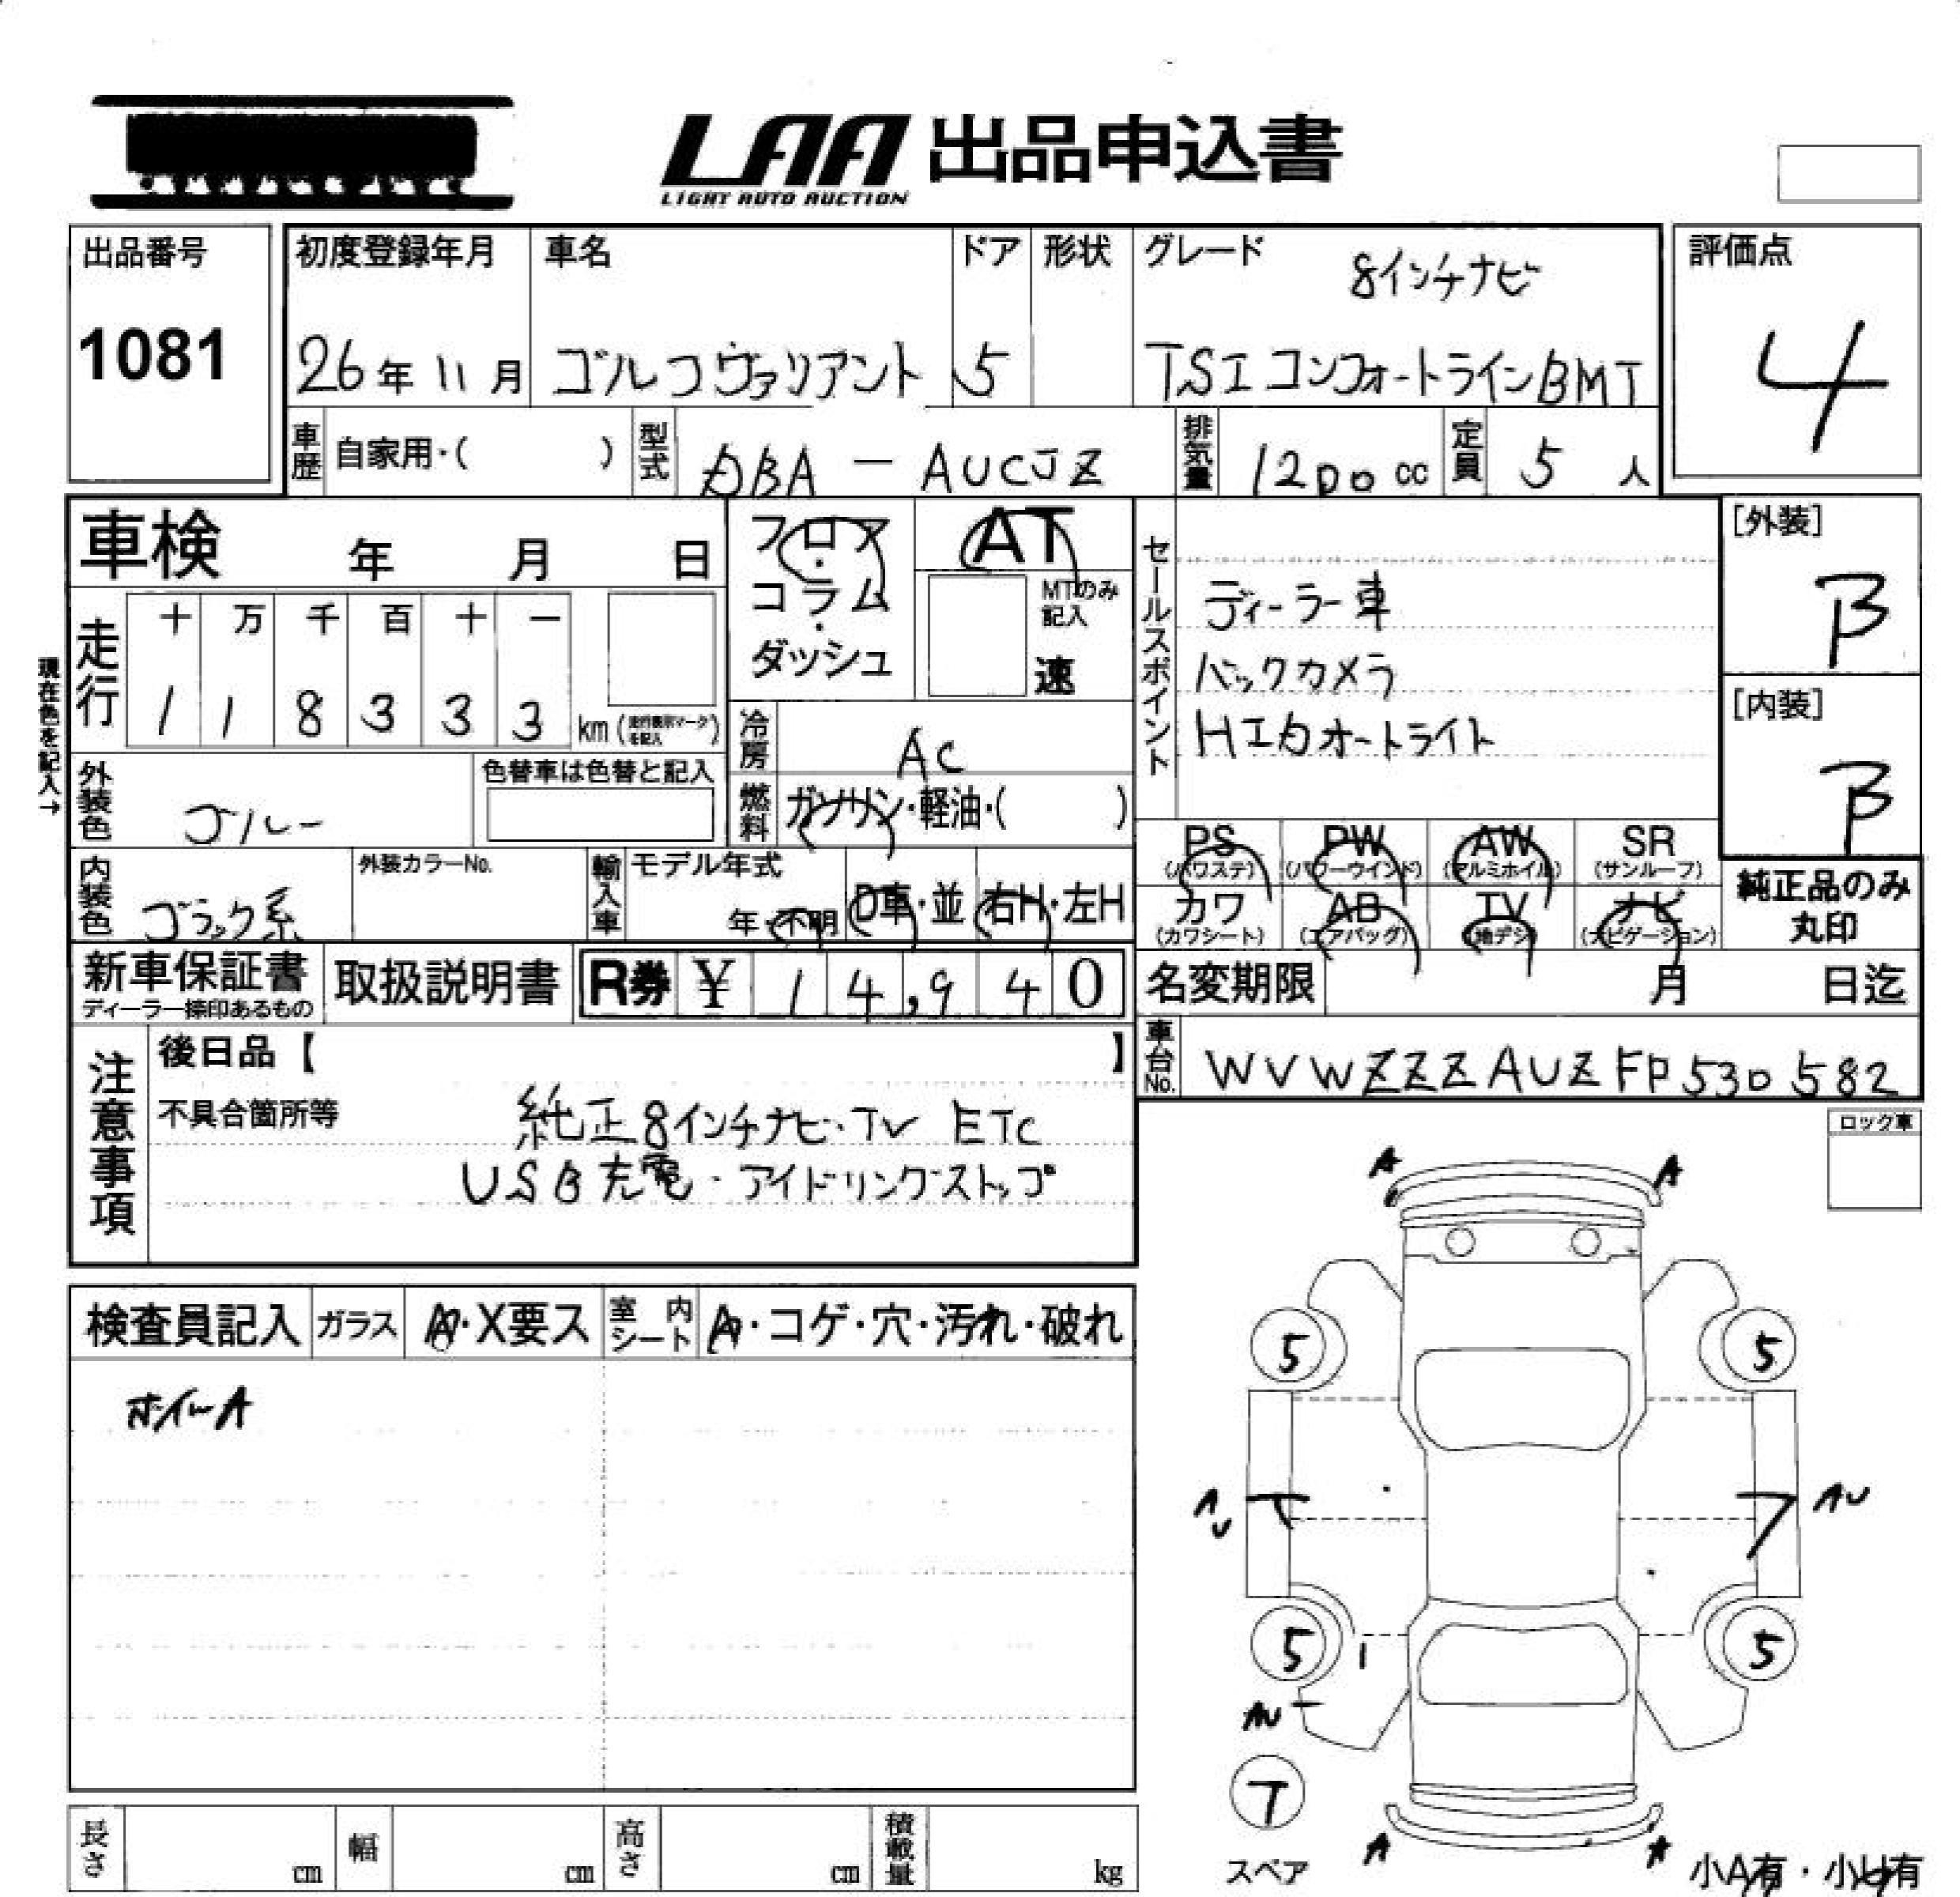 LAA 出品申込書
LIGHT AUTO AUCTION
出品番号
1081
初度登録年月
26年11月
車名
ゴルフヴァリアント
ドア
5
形状
グレード
8インチナビ
TSIコンフォートラインBMT
評価点
4
車歴 自家用・( )
型式 DBA - AUCJZ
排気量 1200cc
定員 5人
車検 年 月 日
フロア・コラム・ダッシュ
AT
MTのみ記入
速
セールスポイント
ディーラー車
バックカメラ
HIDオートライト
[外装]
B
[内装]
B
現在色を記入→
走行
十 万 千 百 十 一
1 1 8 3 3 3 km (走行表示マークを記入)
冷房 AC
燃料 ガソリン・軽油・( )
外装色 ブルー
色替車は色替と記入
内装色 ブラック系
外装カラーNo.
輸入車
モデル年式
年・不明
D車・並
右H・左H
PS (パワステ)
PW (パワーウインド)
AW (アルミホイル)
SR (サンルーフ)
カワ (カワシート)
AB (エアバッグ)
TV (地デジ)
ナビ (ナビゲーション)
純正品のみ丸印
新車保証書
ディーラー捺印あるもの
取扱説明書
R券 ¥ 14,940
名変期限 月 日迄
車台No. WVWZZZAUZFP530582
注意事項
後日品【 】
不具合箇所等
純正8インチナビ・TV ETC
USB充電・アイドリングストップ
ロック車
検査員記入
ガラス A・X要ス
室内シート A・コゲ・穴・汚れ・破れ
ホイールA
A A
5 5
AU AU
5 5
AU
T
スペア
A A
小A有・小U有
長さ cm
幅 cm
高さ cm
積載量 kg